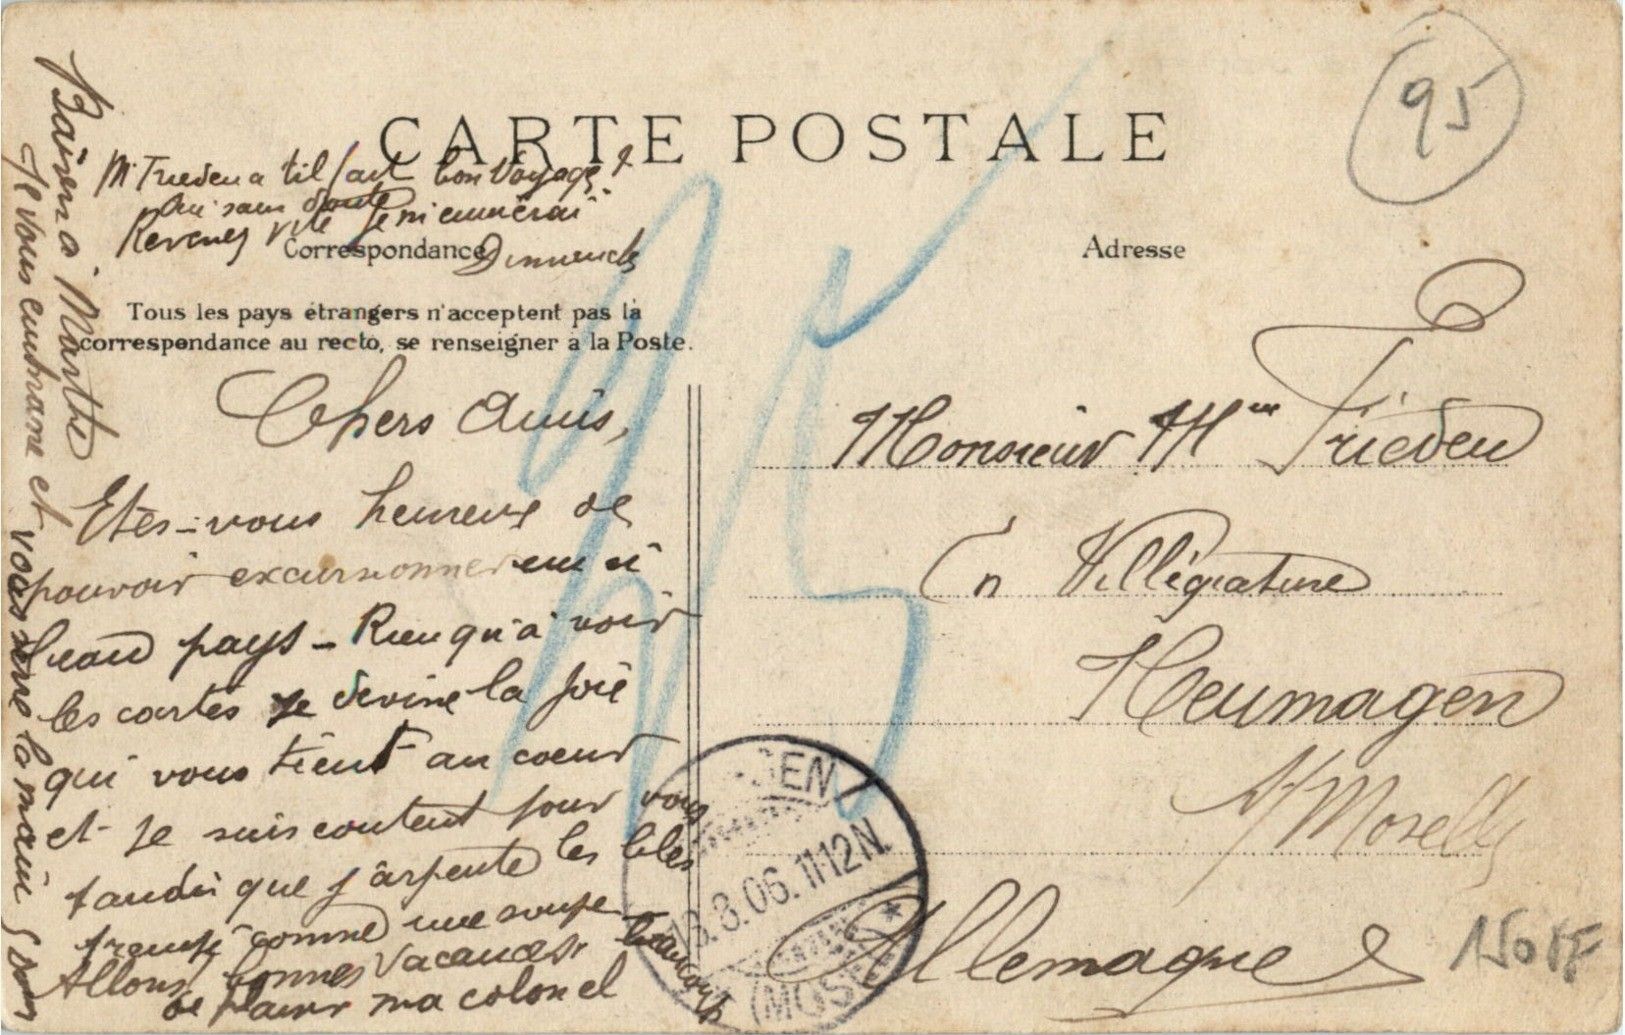 CARTE POSTALE
95
Mr Frieden a til fait bon Voyage?
Oui sans doute
Revenez vite Je m'ennuierai
Correspondance
Adresse
Tous les pays étrangers n'acceptent pas la
correspondance au recto, se renseigner à la Poste.
Chers Amis,
Etes-vous heureux de
pouvoir excursionner en si
beau pays - Rien qu'à voir
les cartes je devine la joie
qui vous tient au coeur
et je suis content pour vous
tandis que j'arpente les
trempé comme une soupe
Allons, bonnes vacances, beaucoup
de plaisir ma colonel
Baisers à Marthe
Je vous embrasse et vous serre la main
Monsieur Mme Frieden
En Villégiature
Neumagen
s/Moselle
Allemagne
GEN
8.06.11-12N.
(MOSEL)
150 FF
35